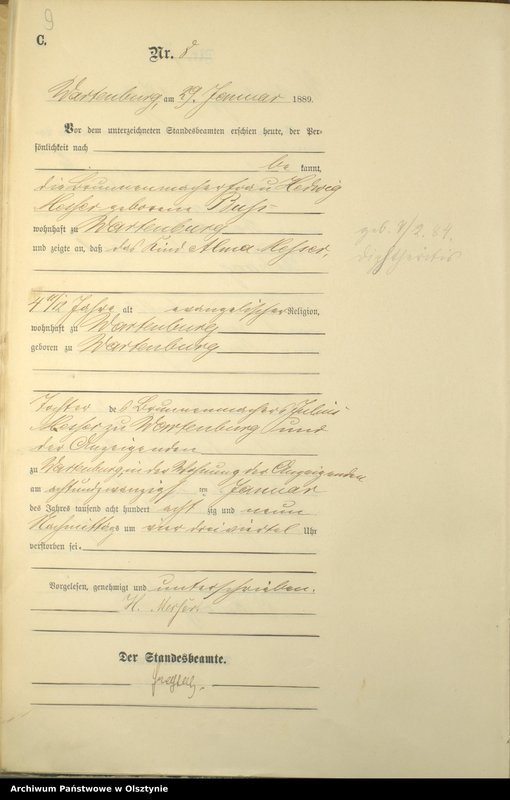 9
C.
Nr. 8
Wartenburg, am 29. Januar 1889.
Vor dem unterzeichneten Standesbeamten erschien heute, der Per-
sönlichkeit nach
be kannt,
die Brunnenmacherfrau Hedwig
Messer geborene
wohnhaft zu Wartenburg
und zeigte an, daß das Kind Alma Messer,
4 11/12 Jahre alt evangelischer Religion,
wohnhaft zu Wartenburg
geboren zu Wartenburg
Tochter des Brunnenmachers Julius
Messer zu Wartenburg und
der Anzeigenden
zu Wartenburg, in der Wohnung der Anzeigenden
am achtundzwanzigsten Januar
des Jahres tausend acht hundert acht zig und neun
Nachmittags um vier dreiviertel Uhr
verstorben sei.
Vorgelesen, genehmigt und unterschrieben.
H. Messer.
Der Standesbeamte.
geb. 8/2. 84.
Diphtheritis
Archiwum Państwowe w Olsztynie